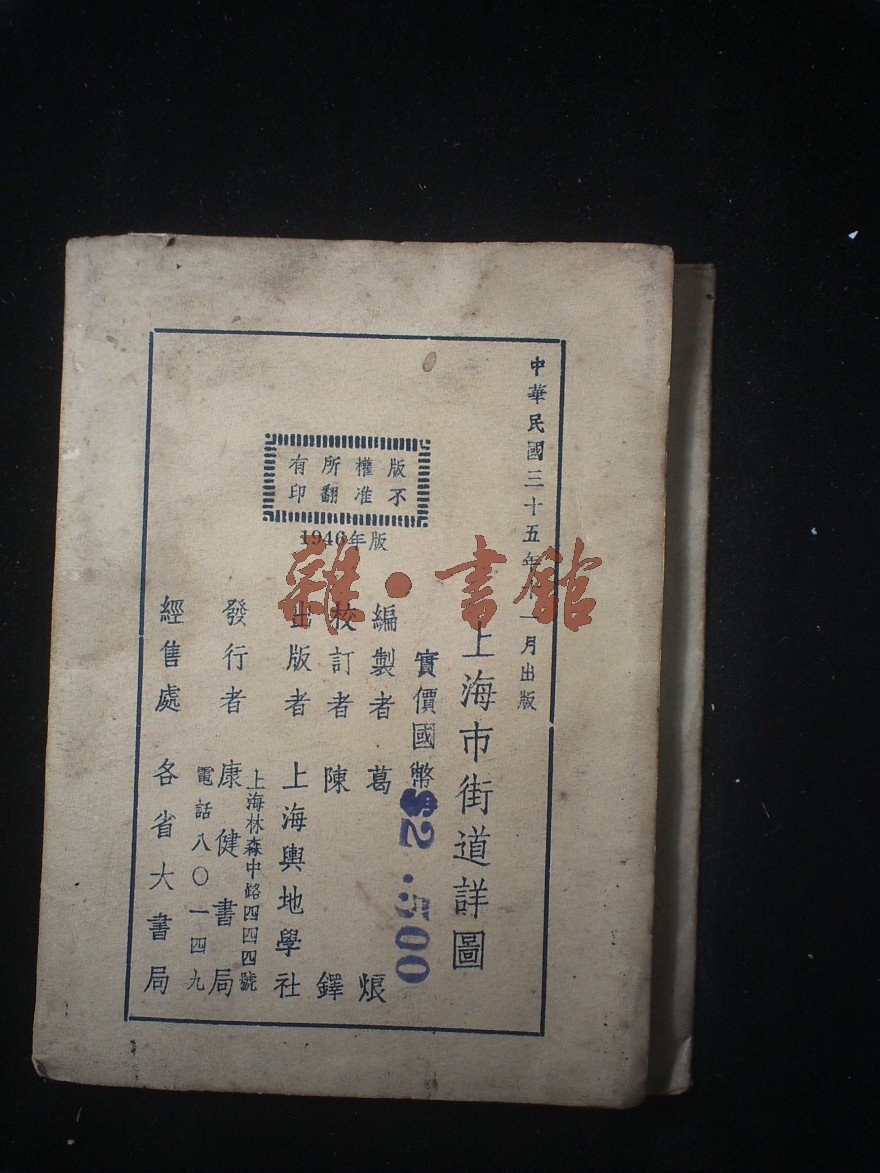 中華民國三十五年十一月出版
上海市街道詳圖
實價國幣 $2.500
版權所有
不准翻印
1946年版
編製者 葛 烺
校訂者 陳 鐸
出版者 上海輿地學社
上海林森中路四四四號
發行者 康健書局
電話八〇一四九
經售處 各省大書局
雜·書館